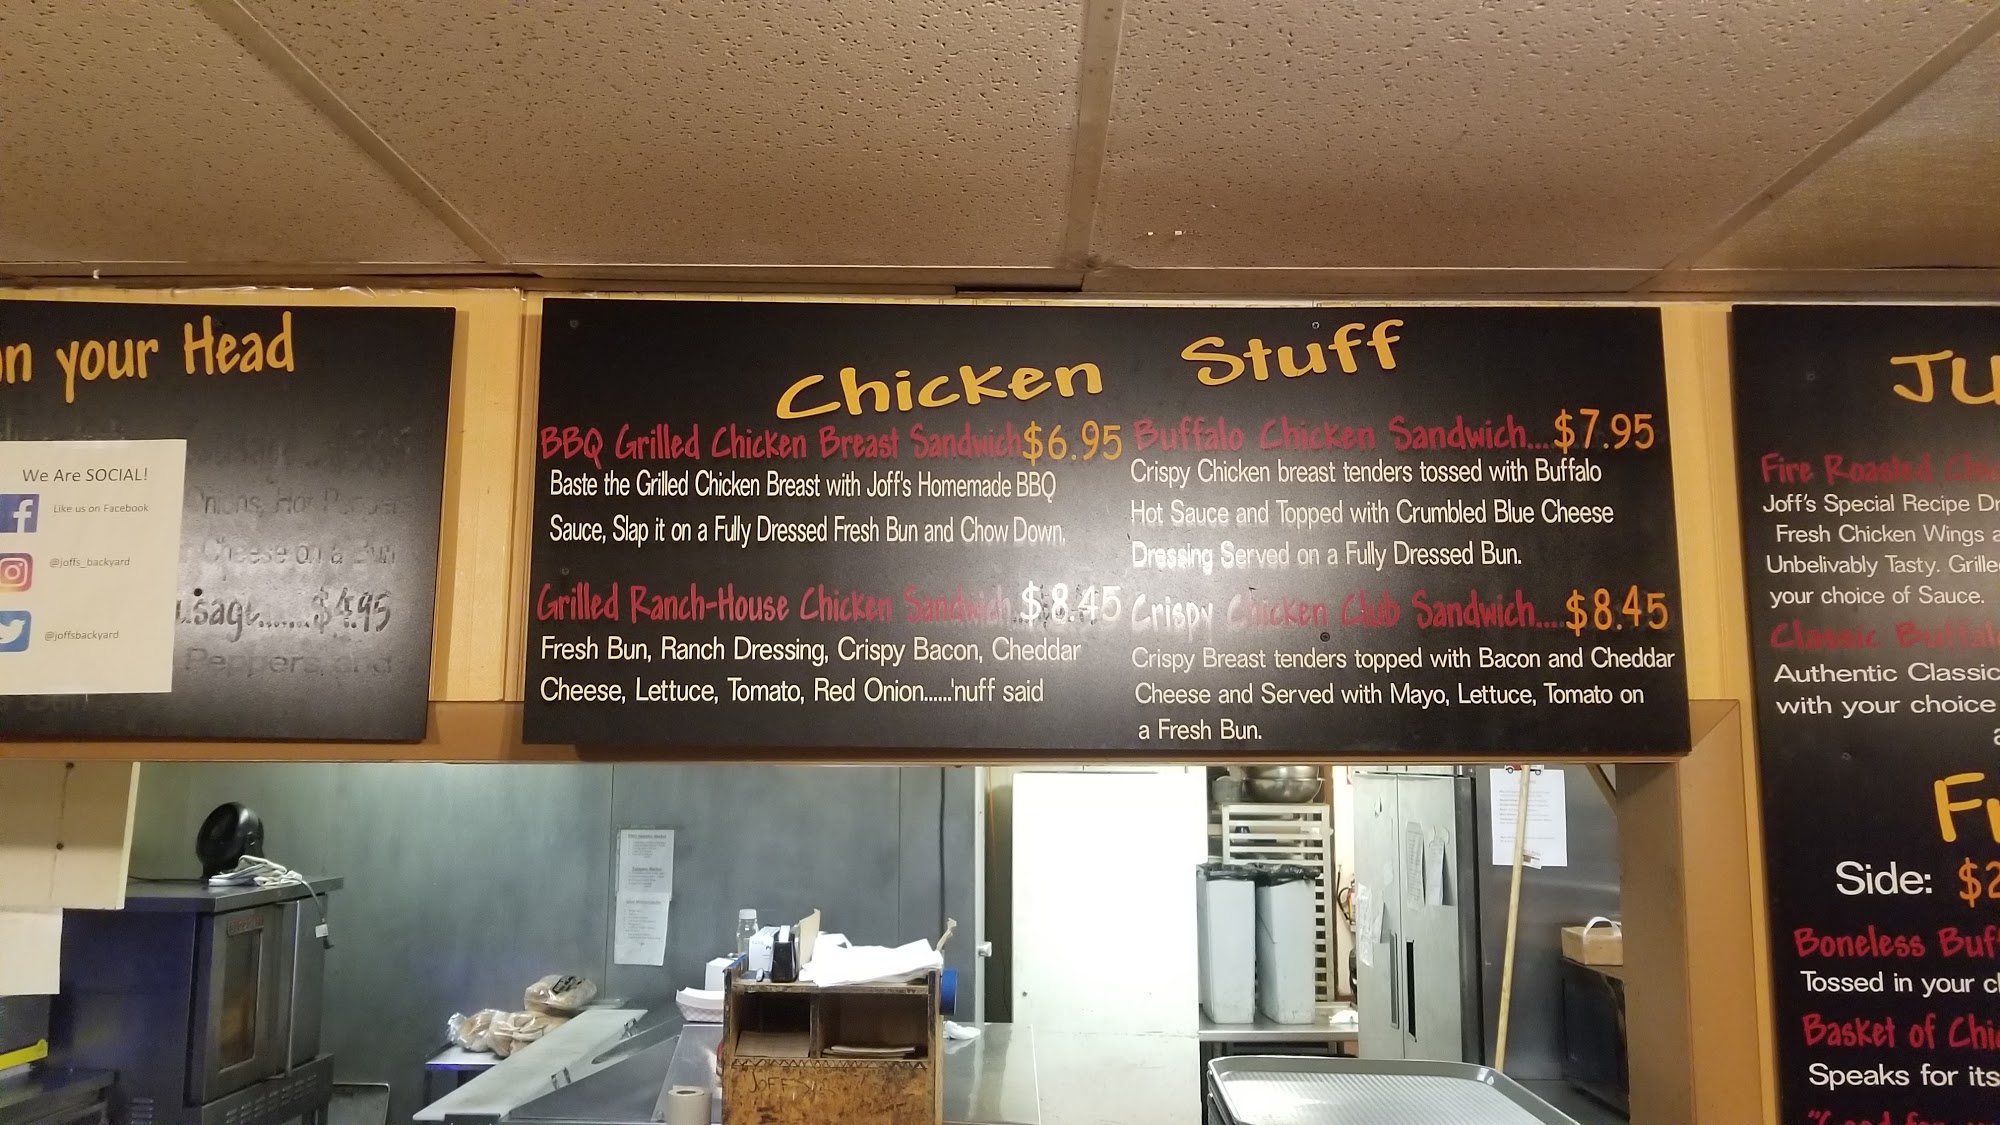 on your Head
We Are SOCIAL!
Like us on Facebook
@joffs_backyard
@joffsbackyard
Onions, Hot Pepper
Cheese on a Bun
usage.......$4.95
Peppers, and
Chicken Stuff
BBQ Grilled Chicken Breast Sandwich $6.95
Baste the Grilled Chicken Breast with Joff's Homemade BBQ
Sauce, Slap it on a Fully Dressed Fresh Bun and Chow Down.
Grilled Ranch-House Chicken Sandwich...$8.45
Fresh Bun, Ranch Dressing, Crispy Bacon, Cheddar
Cheese, Lettuce, Tomato, Red Onion......'nuff said
Buffalo Chicken Sandwich...$7.95
Crispy Chicken breast tenders tossed with Buffalo
Hot Sauce and Topped with Crumbled Blue Cheese
Dressing Served on a Fully Dressed Bun.
Crispy Chicken Club Sandwich....$8.45
Crispy Breast tenders topped with Bacon and Cheddar
Cheese and Served with Mayo, Lettuce, Tomato on
a Fresh Bun.
JU
Fire Roasted Chic
Joff's Special Recipe Dr
Fresh Chicken Wings a
Unbelivably Tasty. Grille
your choice of Sauce.
Classic Buffal
Authentic Classic
with your choice
Fr
Side: $2
Boneless Buf
Tossed in your c
Basket of Chi
Speaks for its
"Good for